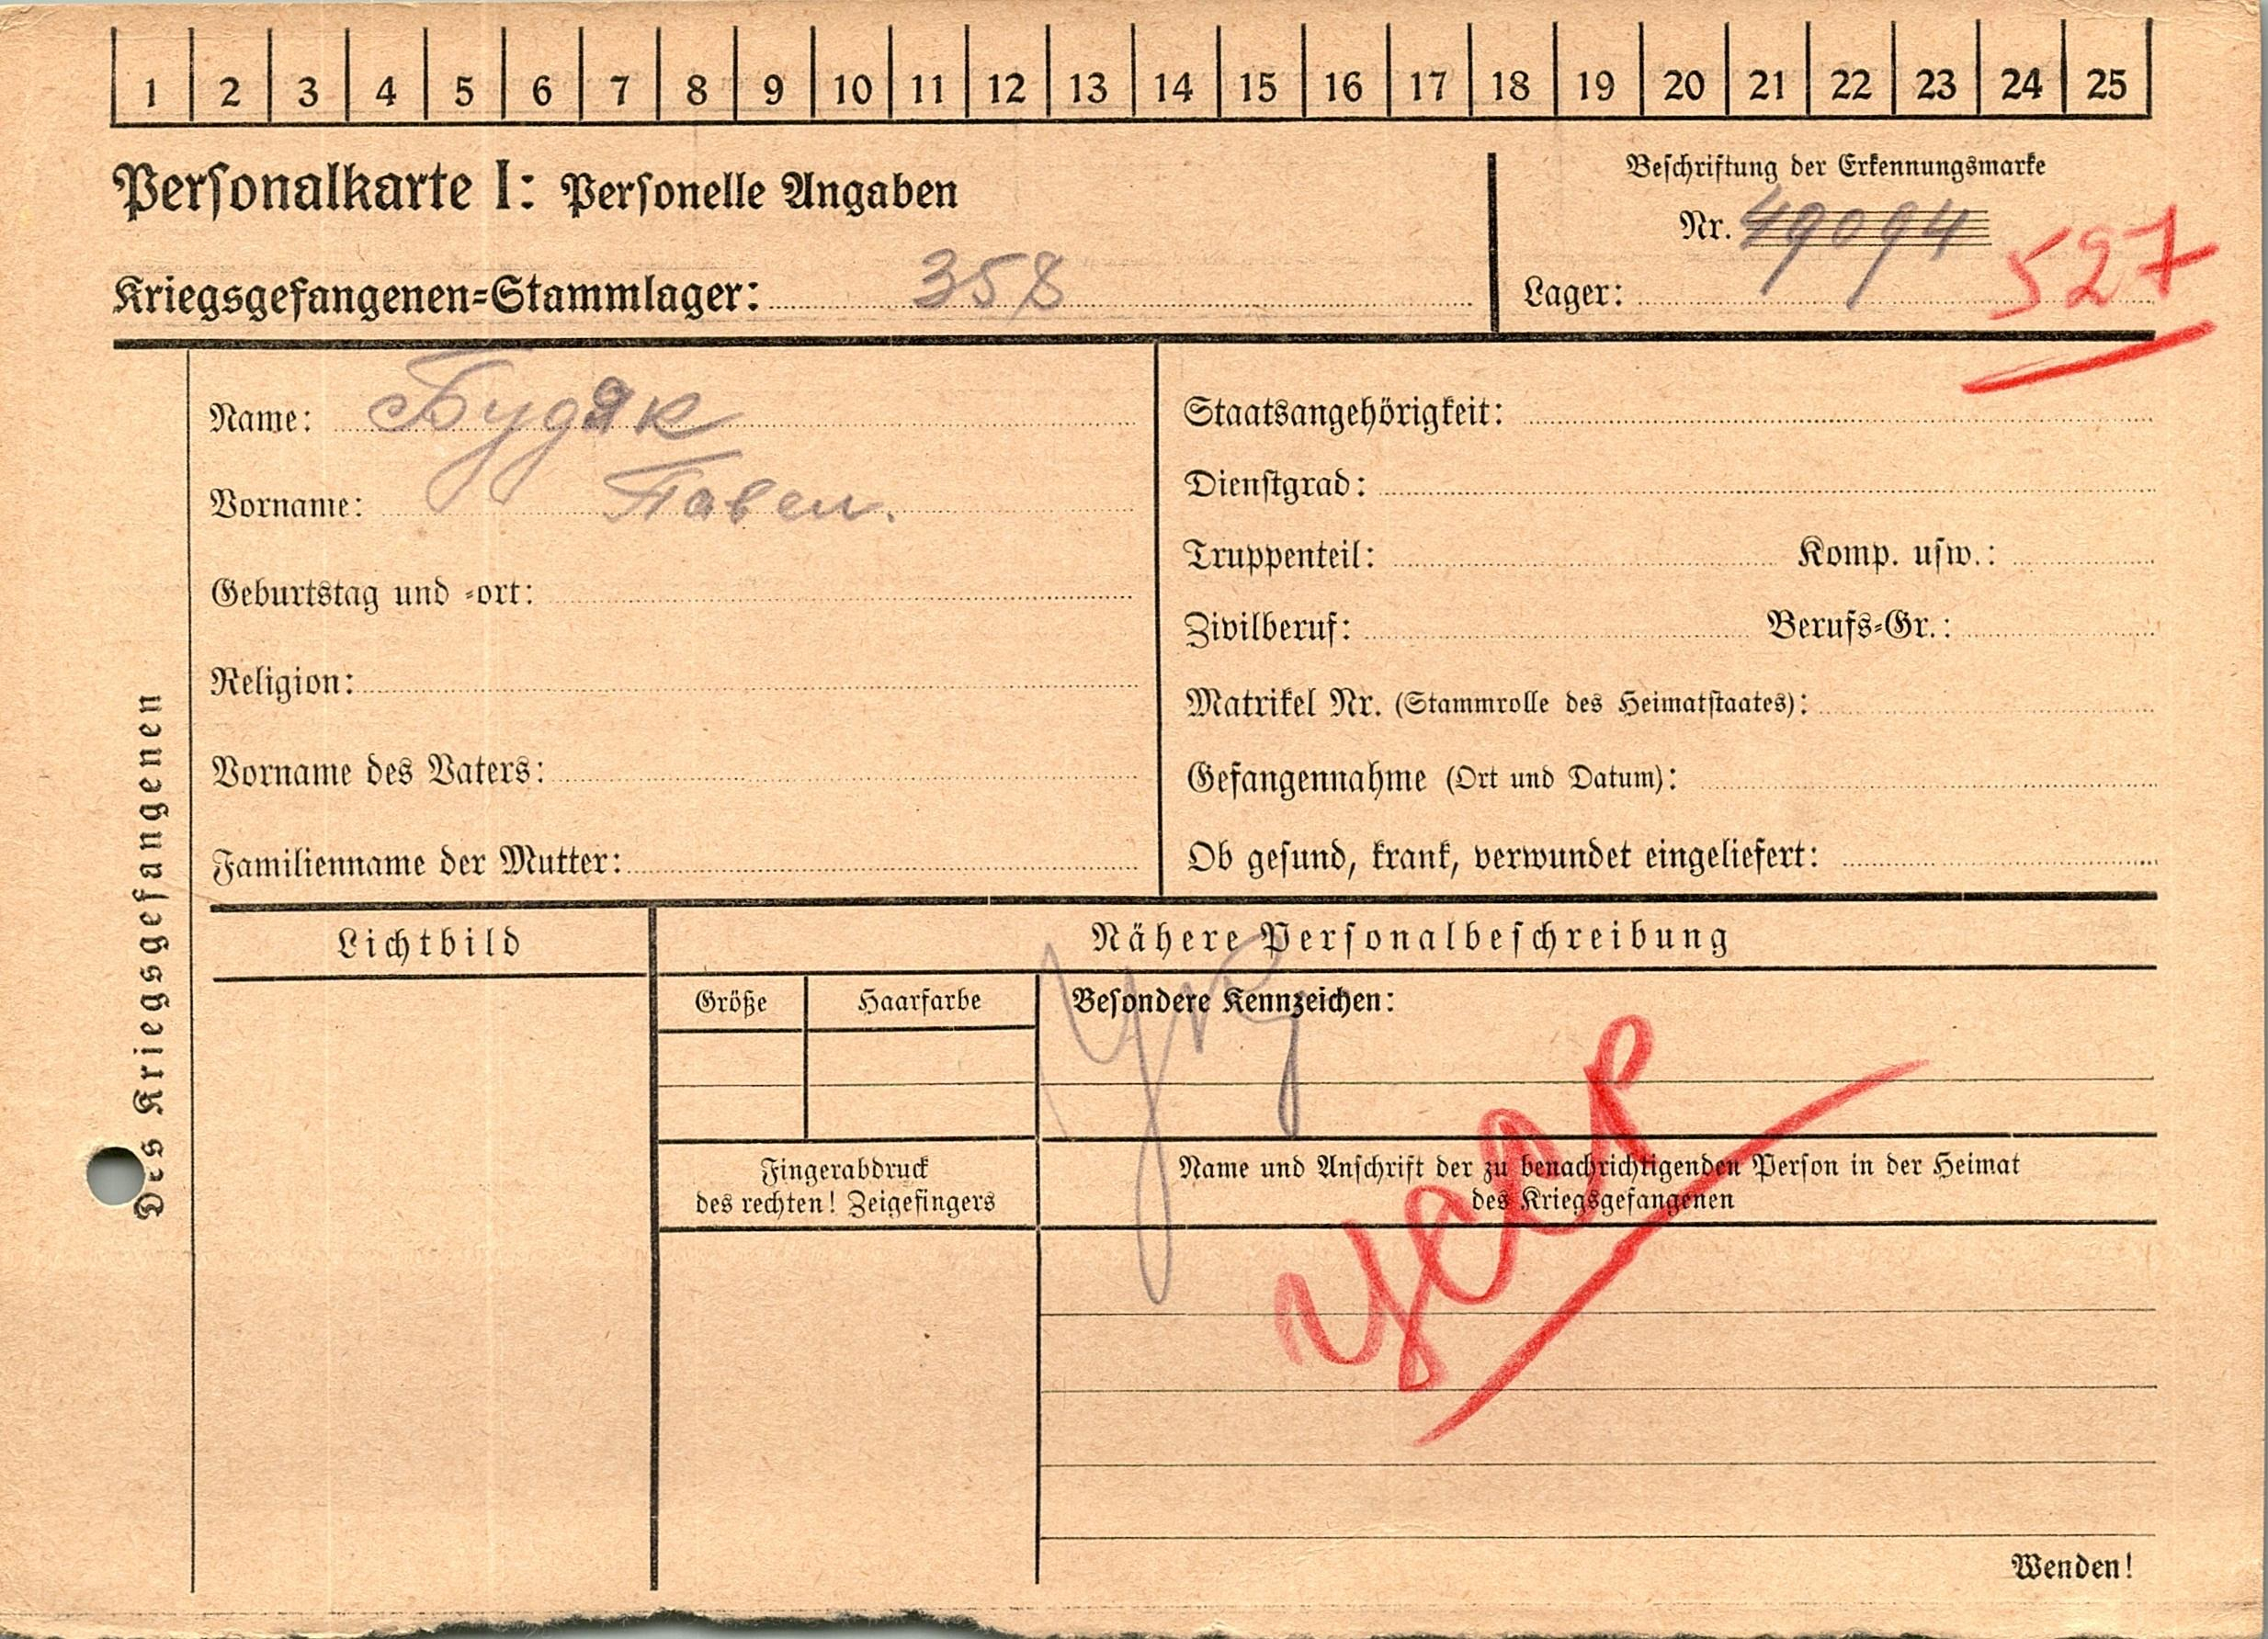 1 2 3 4 5 6 7 8 9 10 11 12 13 14 15 16 17 18 19 20 21 22 23 24 25
Personalkarte I: Personelle Angaben
Beschriftung der Erkennungsmarke
Nr. 49094
527
Kriegsgefangenen=Stammlager: 358
Lager:
Des Kriegsgefangenen
Name: Будяк
Vorname: Павел.
Geburtstag und =ort:
Religion:
Vorname des Vaters:
Familienname der Mutter:
Staatsangehörigkeit:
Dienstgrad:
Truppenteil: Komp. usw.:
Zivilberuf: Berufs=Gr.:
Matrikel Nr. (Stammrolle des Heimatstaates):
Gefangennahme (Ort und Datum):
Ob gesund, krank, verwundet eingeliefert:
Lichtbild
Nähere Personalbeschreibung
Größe
Haarfarbe
Besondere Kennzeichen:
Fingerabdruck
des rechten! Zeigefingers
Name und Anschrift der zu benachrichtigenden Person in der Heimat
des Kriegsgefangenen
Wenden!